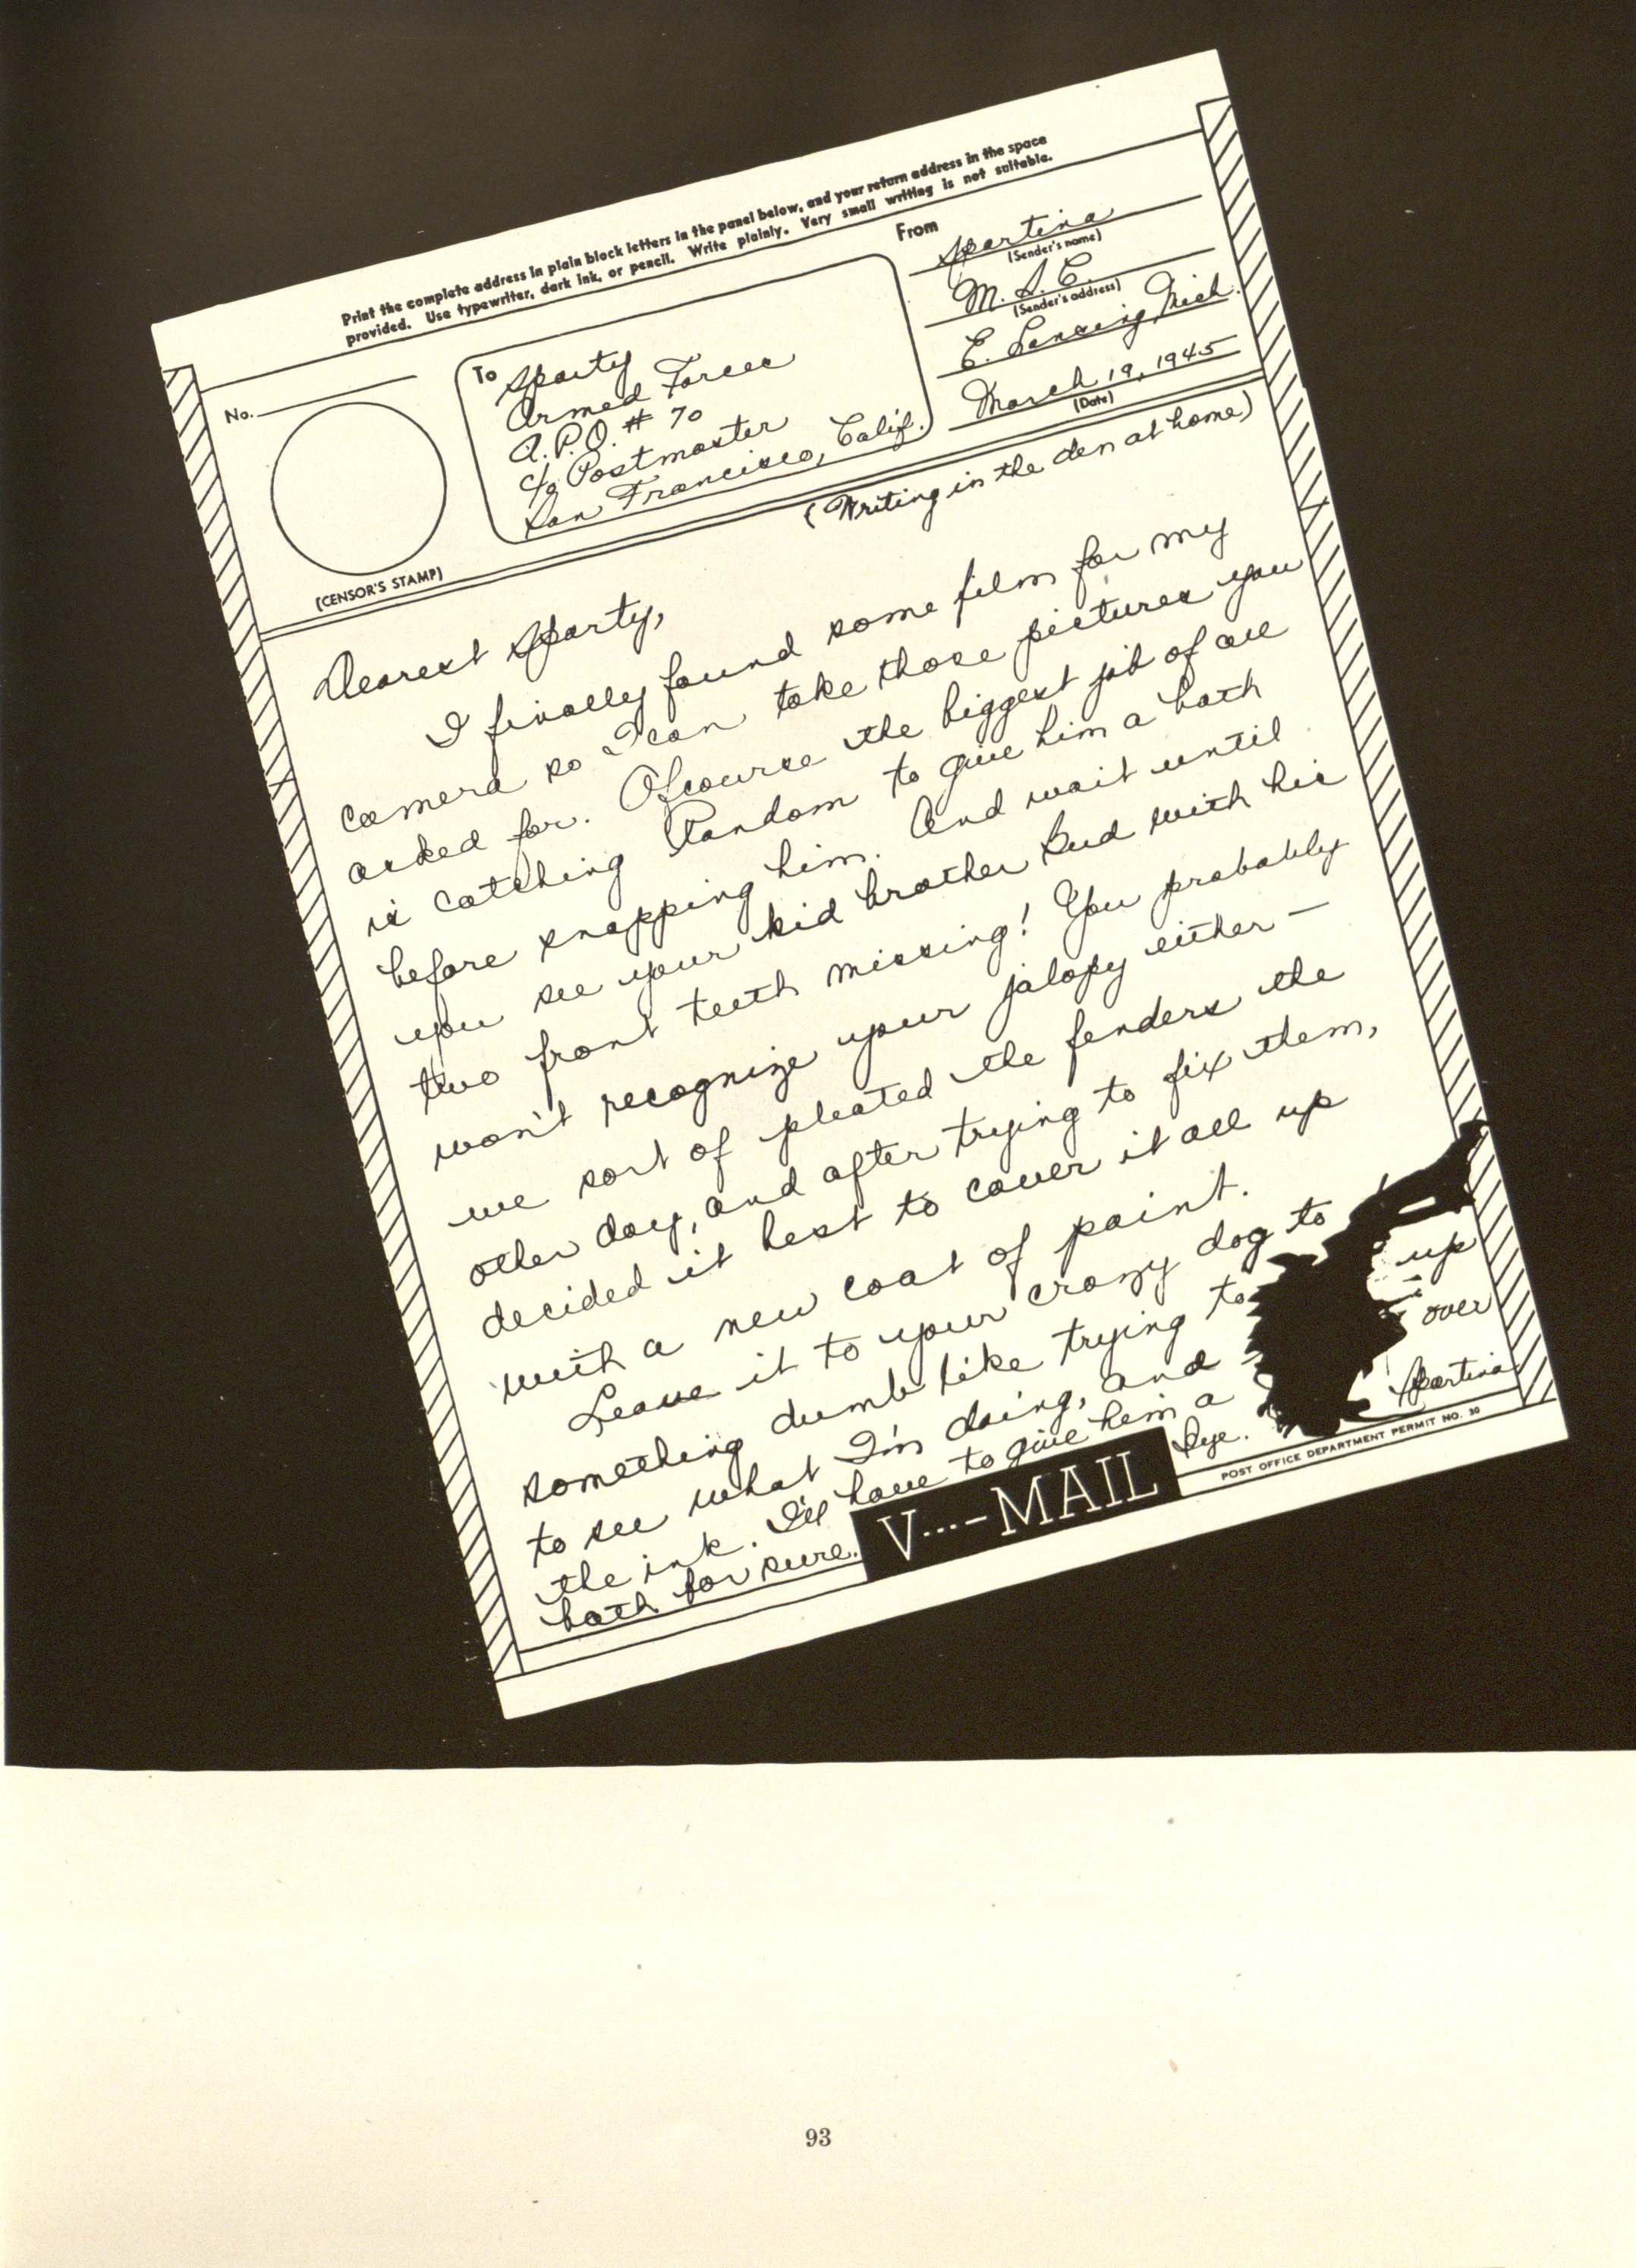 Print the complete address in plain block letters in the panel below, and your return address in the space
provided. Use typewriter, dark ink, or pencil. Write plainly. Very small writing is not suitable.
No.
(CENSOR'S STAMP)
To Sparty
Armed Forces
A.P.O. # 70
c/o Postmaster
San Francisco, Calif.
From
Spartina
(Sender's name)
M. S. C.
(Sender's address)
E. Lansing, Mich.
March 19, 1945
(Date)
(Writing in the den at home)
Dearest Sparty,
I finally found some film for my
camera so I can take those pictures you
asked for. Ofcourse the biggest job of all
is catching Random to give him a bath
before snapping him. And wait until
you see your kid brother Bud with his
two front teeth missing! You probably
won't recognize your jalopy either —
we sort of pleated the fenders the
other day, and after trying to fix them,
decided it best to cover it all up
with a new coat of paint.
Leave it to your crazy dog to
something dumb like trying to up
to see what I'm doing, and over
the ink. I'll have to give him a
bath for sure. Bye. Spartina
V···—MAIL
POST OFFICE DEPARTMENT PERMIT NO. 30
93